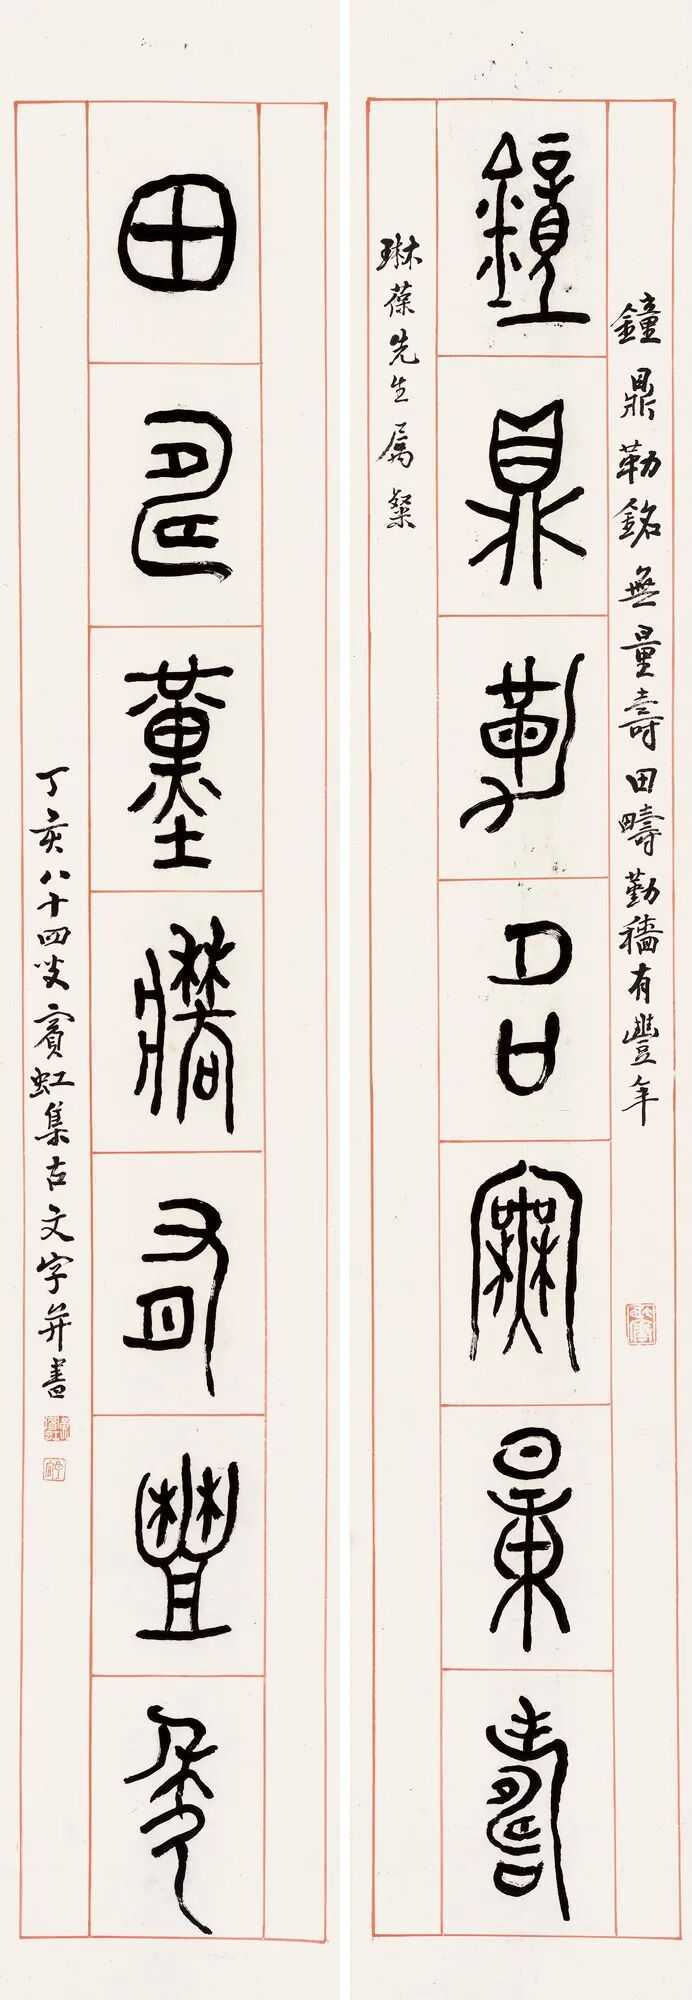 鐘鼎勒銘無量壽
鐘鼎勒銘無量壽田疇勤穡有豐年
琳葆先生屬粲
田疇勤穡有豐年
丁亥八十四叟賓虹集古文字并書